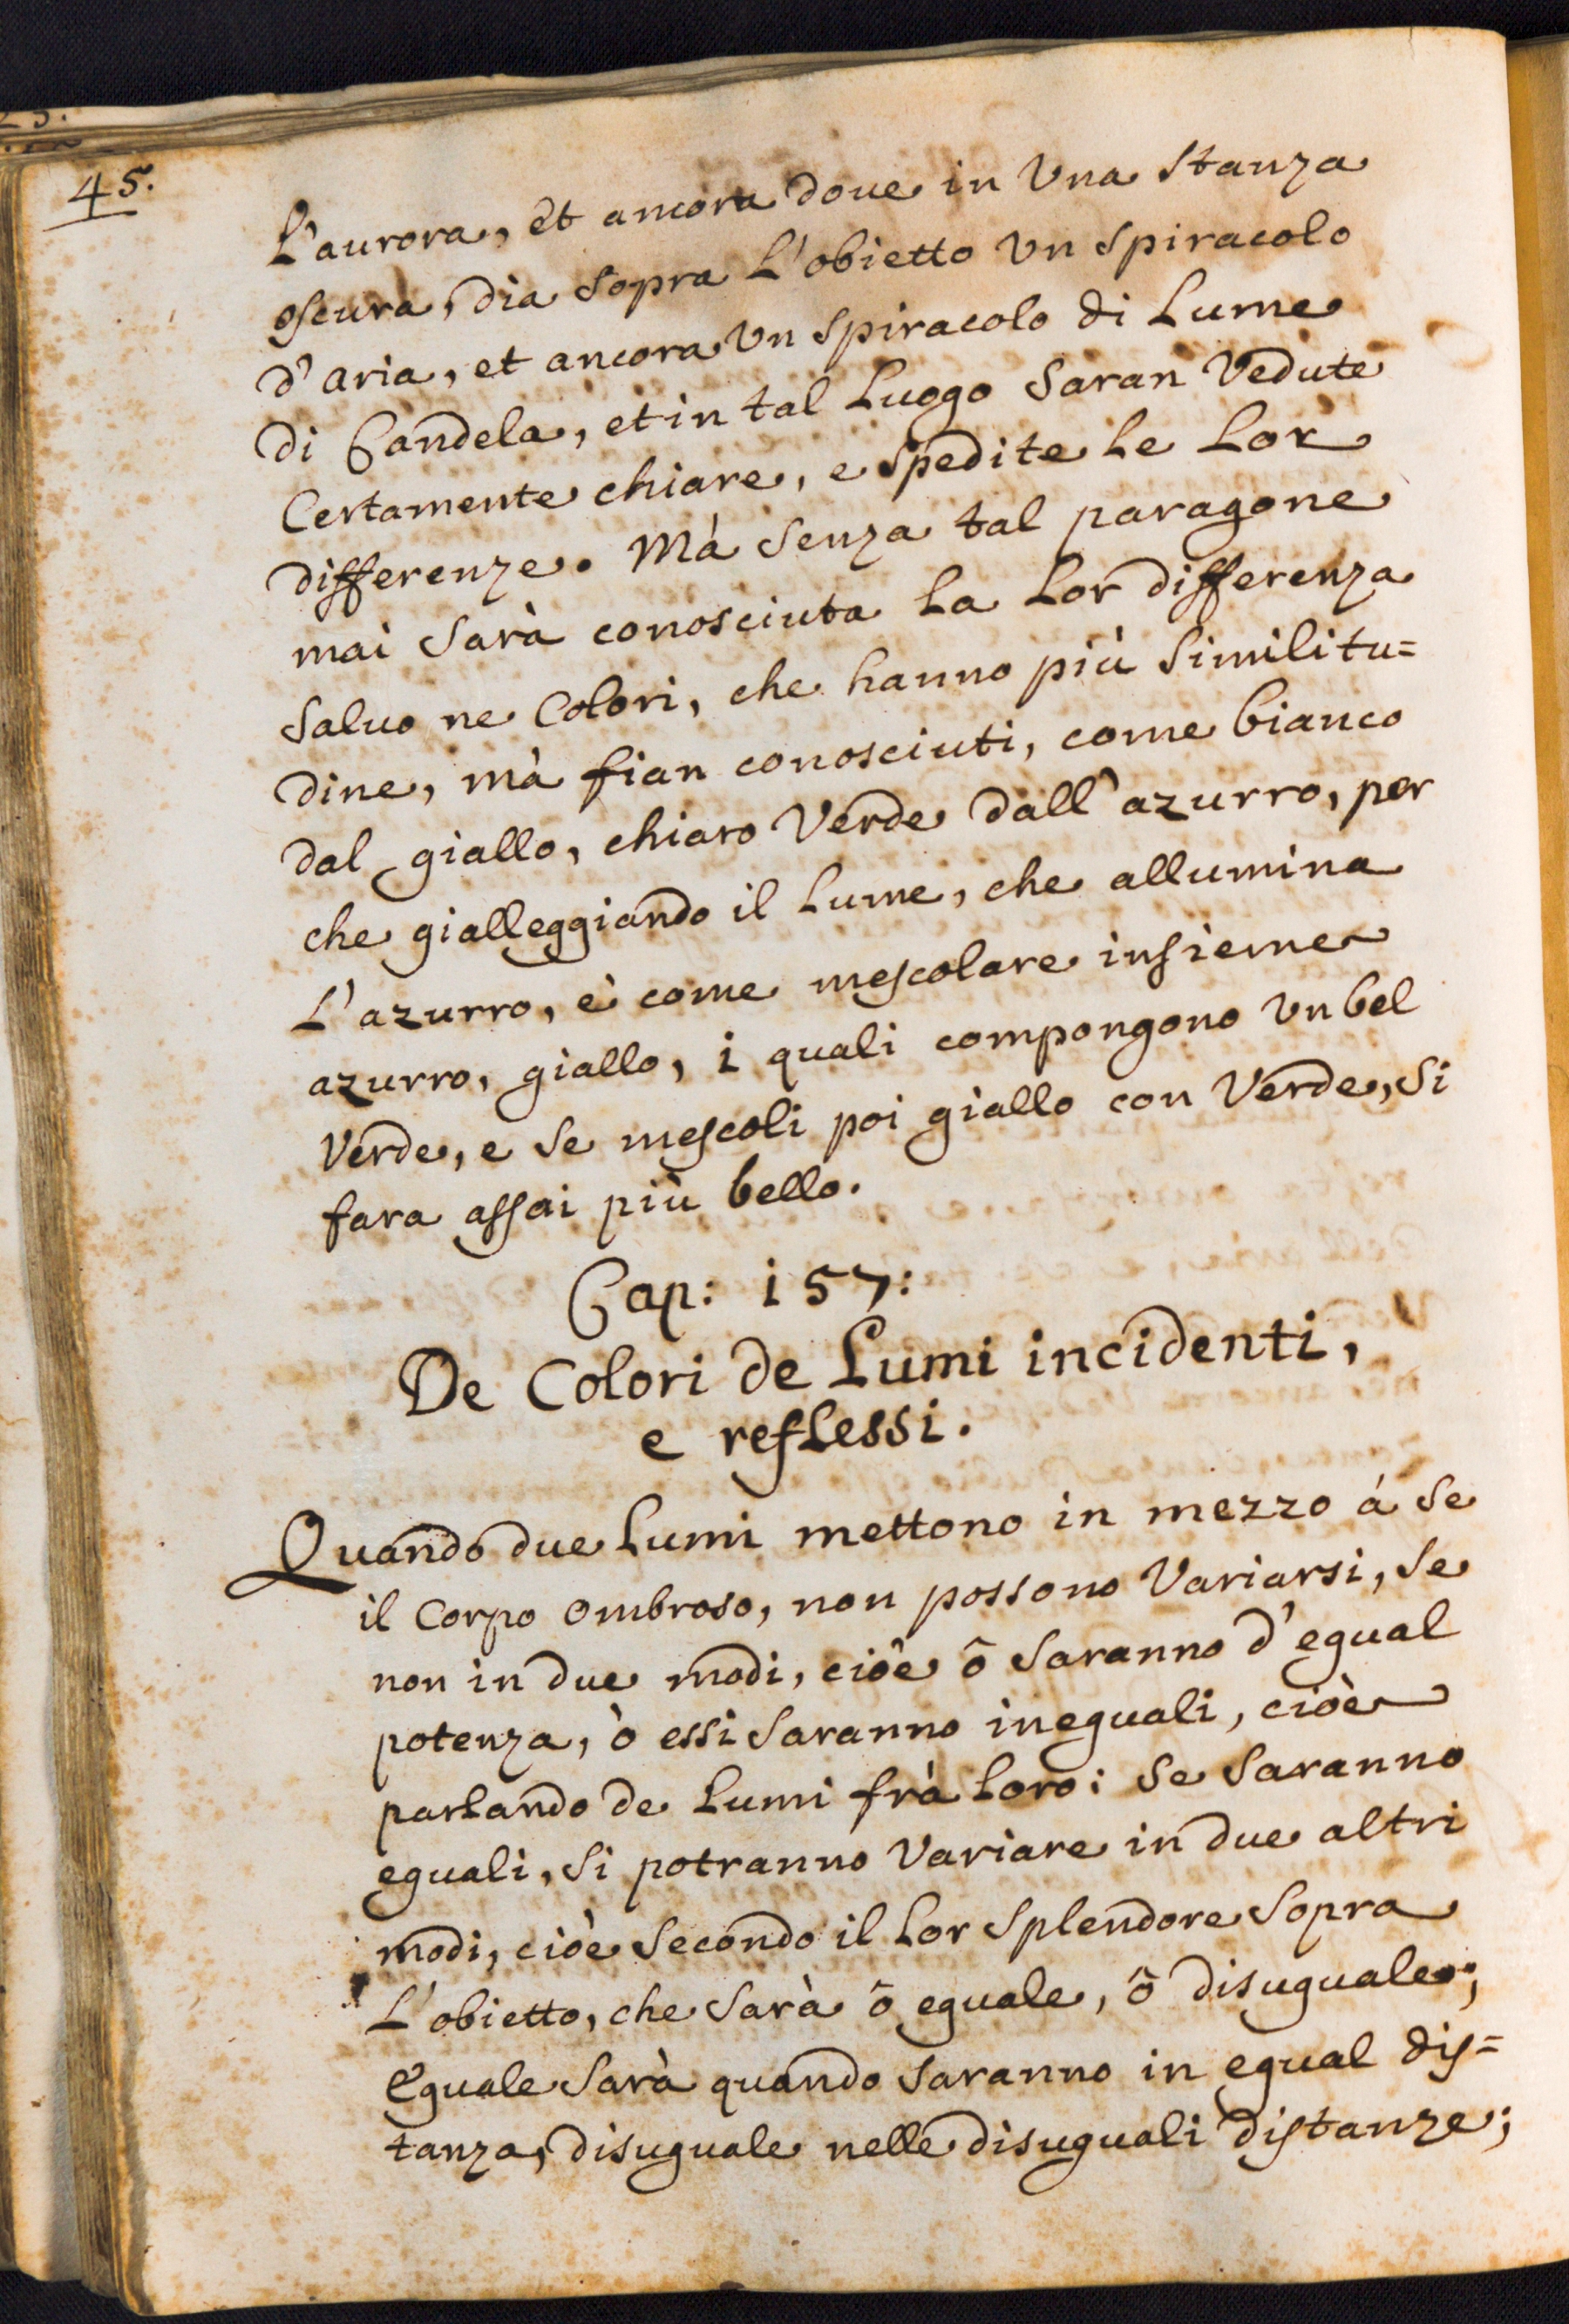 45.
L'aurora, et ancora doue in Vna stanza
oscura, dia sopra L'obietto Vn spiracolo
d'aria, et ancora Vn spiracolo di Lume
di Candela, et in tal Luogo saran Vedute
Certamente chiare, e spedite Le Lor
differenze. Mà senza tal paragone
mai sarà conosciuta La Lor differenza
saluo ne Colori, che hanno più similitu=
dine, mà fian conosciuti, come bianco
dal giallo, chiaro Verde dall'azurro, per
che gialleggiando il Lume, che allumina
L'azurro, è come mescolare insieme
azurro, giallo, i quali compongono Vn bel
Verde, e se mescoli poi giallo con Verde, si
fara assai più bello.
Cap: 157:
De Colori de Lumi incidenti,
e reflessi.
Quando due Lumi mettono in mezzo á se
il Corpo ombroso, non possono Variarsi, se
non in due modi, cioê ô saranno d'egual
potenza, ò essi saranno ineguali, cioè
parlando de Lumi frà Loro: se saranno
eguali, si potranno Variare in due altri
modi, cioè secondo il Lor splendore sopra
L'obietto, che sarà ô eguale, ô disuguale;
Eguale sarà quando saranno in egual dis=
tanza, disuguale nelle disuguali distanze;